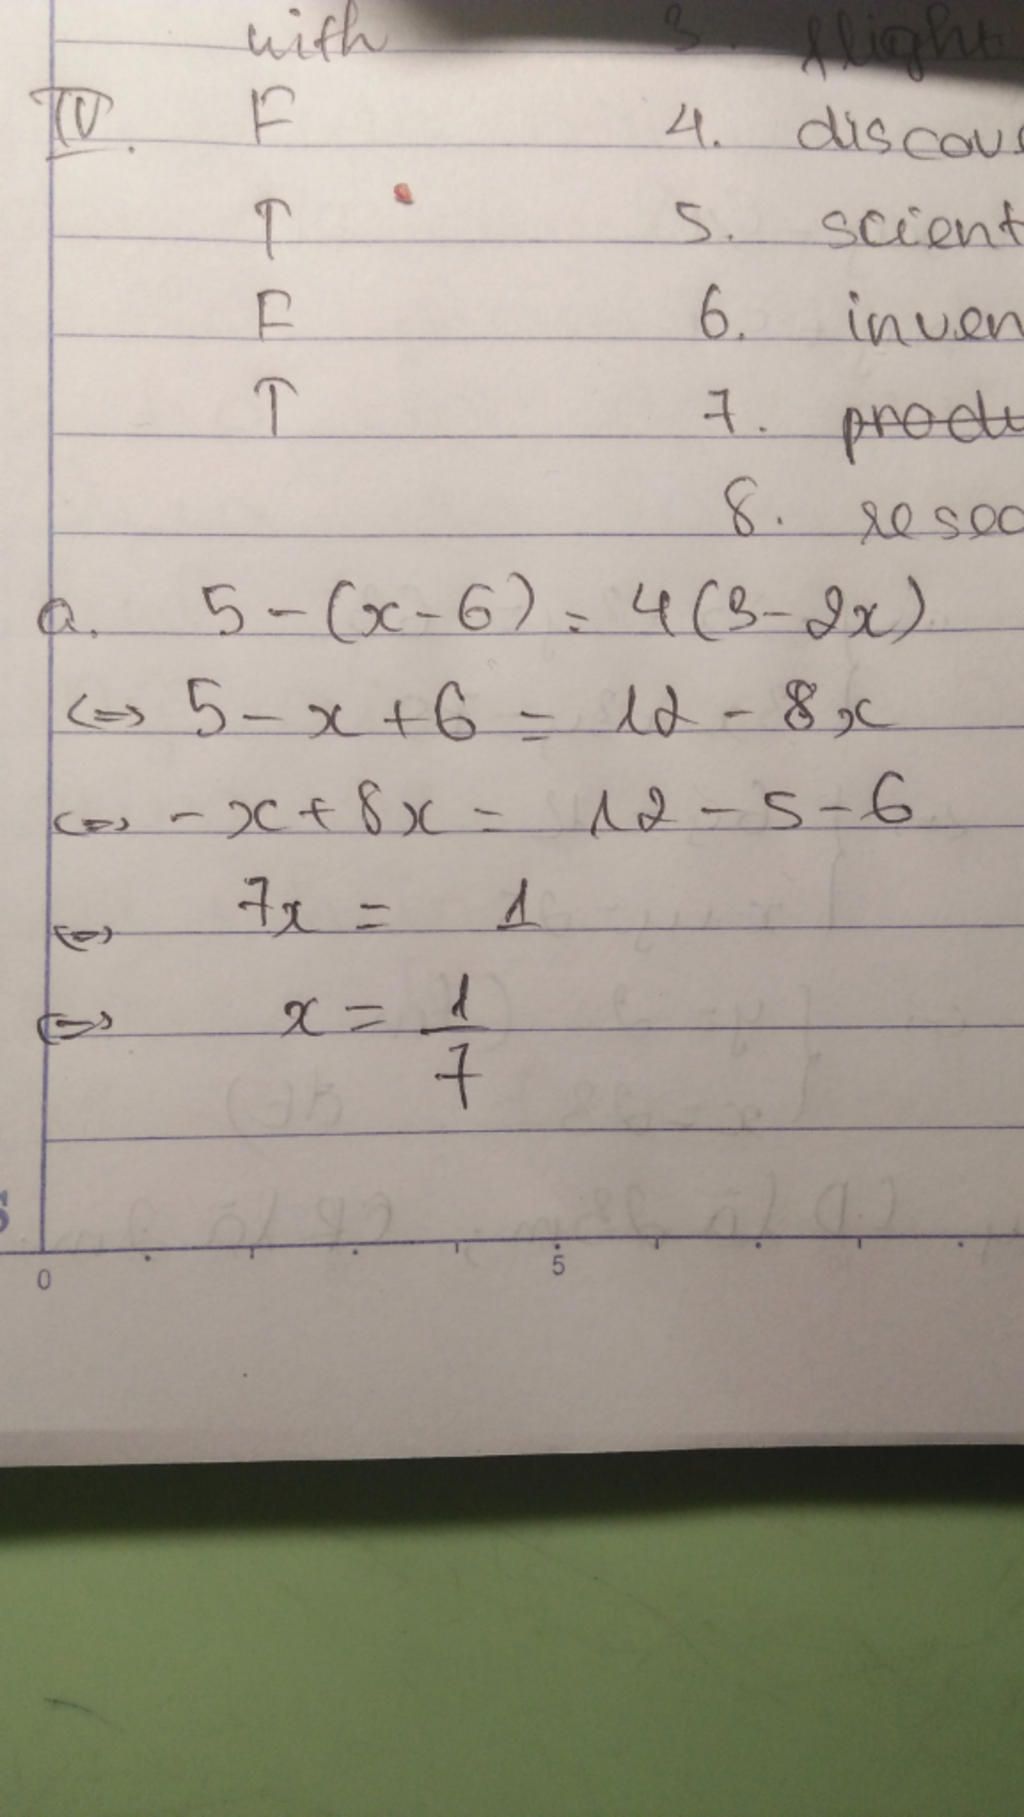 with 3. flight
IV. F 4. discov
T 5. scient
F 6. inven
T 7. produ
8. resea
a. 5 - (x - 6) = 4(3 - 2x)
<=> 5 - x + 6 = 12 - 8x
<=> - x + 8x = 12 - 5 - 6
<=> 7x = 1
<=> x = 1/7
0 5